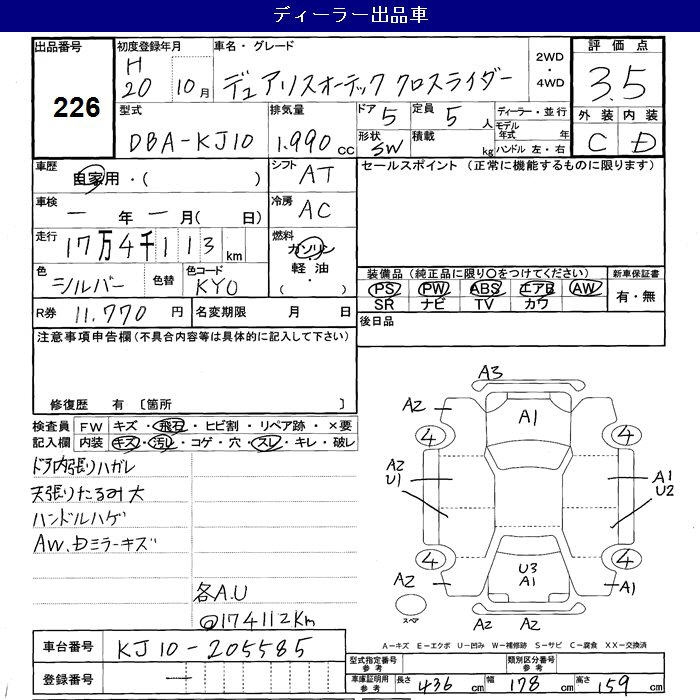 ディーラー出品車
出品番号 226
初度登録年月 H 20 10月
車名・グレード デュアリスオーテック クロスライダー
2WD・4WD
評価点 3.5
外装 内装
C D
型式 DBA-KJ10
排気量 1.990 cc
ドア 5 定員 5 人
形状 SW 積載 kg
ディーラー・並行
モデル年式 年
ハンドル 左・右
車歴 自家用・( )
シフト AT
車検 ー 年 ー 月( 日)
冷房 AC
走行 17万4千113 km
燃料 ガソリン 軽油 ( ・ )
色 シルバー 色替 色コード KY0
R券 11.770 円 名変期限 月 日
セールスポイント (正常に機能するものに限ります)
装備品 (純正品に限り○をつけてください) 新車保証書
PS PW ABS エアB AW 有・無
SR ナビ TV カワ
後日品
注意事項申告欄 (不具合内容等は具体的に記入して下さい)
修復歴 有 〔箇所 〕
検査員記入欄
FW キズ・飛石・ヒビ割・リペア跡・×要
内装 キズ・汚レ・コゲ・穴・スレ・キレ・破レ
ドア内張りハガレ
天張りたるみ大
ハンドルハゲ
AW.Dミラーキズ
各A.U
@174112Km
A3
A2 A1
4 4
A2 U1 A1 U2
4 4
A2 U3 A1 A1
スペア A2 A2
A=キズ E=エクボ U=凹み W=補修跡 S=サビ C=腐食 XX=交換済
車台番号 KJ10-205585
登録番号 ー
型式指定番号 参考 類別区分番号 参考
車庫証明用 参考 長さ 436 cm 幅 178 cm 高さ 159 cm